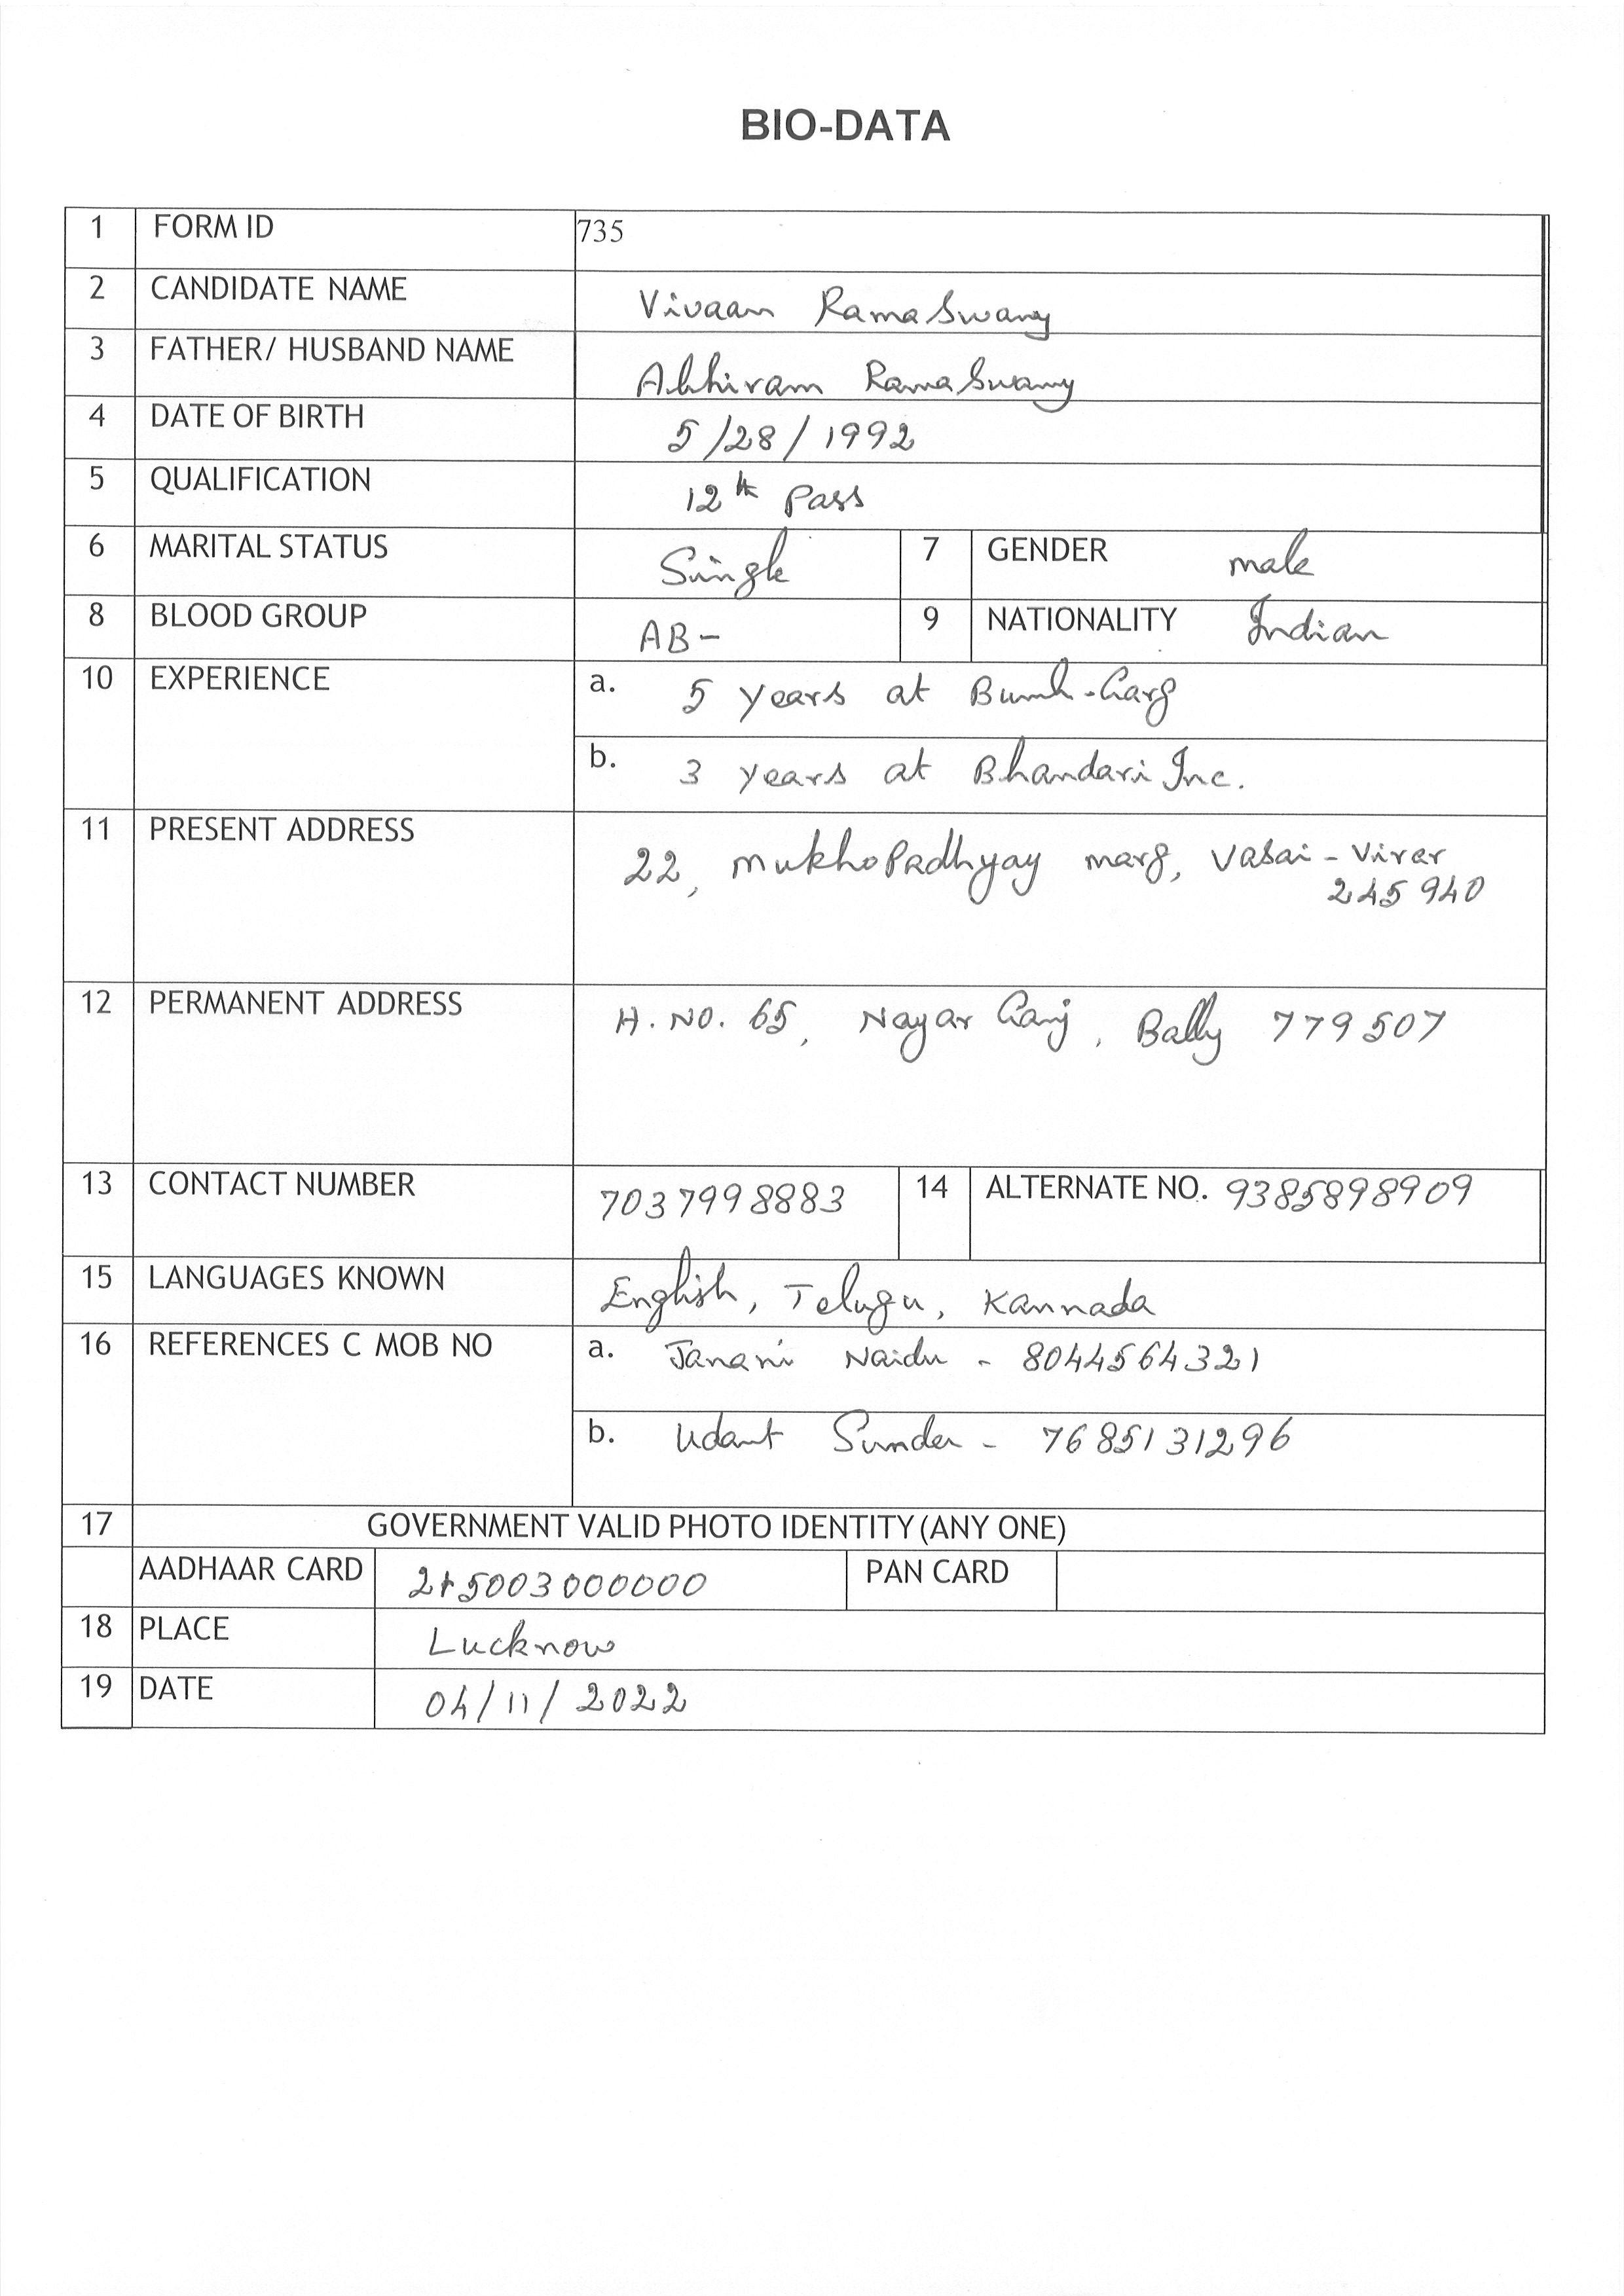 BIO-DATA
1 FORM ID 735
2 CANDIDATE NAME Vivaan RamaSwamy
3 FATHER/ HUSBAND NAME Abhiram RamaSwamy
4 DATE OF BIRTH 5/28/1992
5 QUALIFICATION 12th Pass
6 MARITAL STATUS Single 7 GENDER male
8 BLOOD GROUP AB- 9 NATIONALITY Indian
10 EXPERIENCE a. 5 years at
b. 3 years at Bhandari Inc.
11 PRESENT ADDRESS 22, MukhoPadhyay marg, Vasai - Virar
245940
12 PERMANENT ADDRESS H.NO. 65, Nayar Ganj, Bally 779507
13 CONTACT NUMBER 7037998883 14 ALTERNATE NO. 9385898909
15 LANGUAGES KNOWN English, Telugu, Kannada
16 REFERENCES C MOB NO a. Janani Naidu - 8044564321
b. Udant Sunder - 7685131296
17 GOVERNMENT VALID PHOTO IDENTITY (ANY ONE)
AADHAAR CARD PAN CARD
18 PLACE Lucknow
19 DATE 04/11/2022